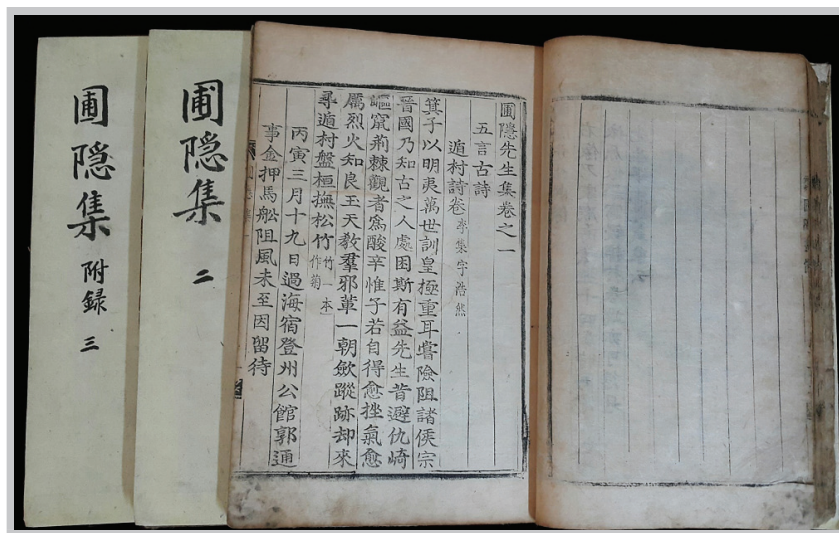 圃隱先生集卷之一
五言古詩
遁村詩卷 李集字浩然
箕子以明夷萬世訓皇極重耳嘗險阻諸侯宗
晋國乃知古之人處困斯有益先生昔避仇崎
嶇竄荊棘觀者爲酸辛惟子若自得愈挫氣愈
厲烈火知良玉天教羣邪軰一朝斂蹤跡却來
尋遁村盤桓撫松竹 竹一本作菊
丙寅三月十九日過海宿登州公館郭通
事金押馬船阻風未至因留待
圃隠集 二
圃隠集 附録 三